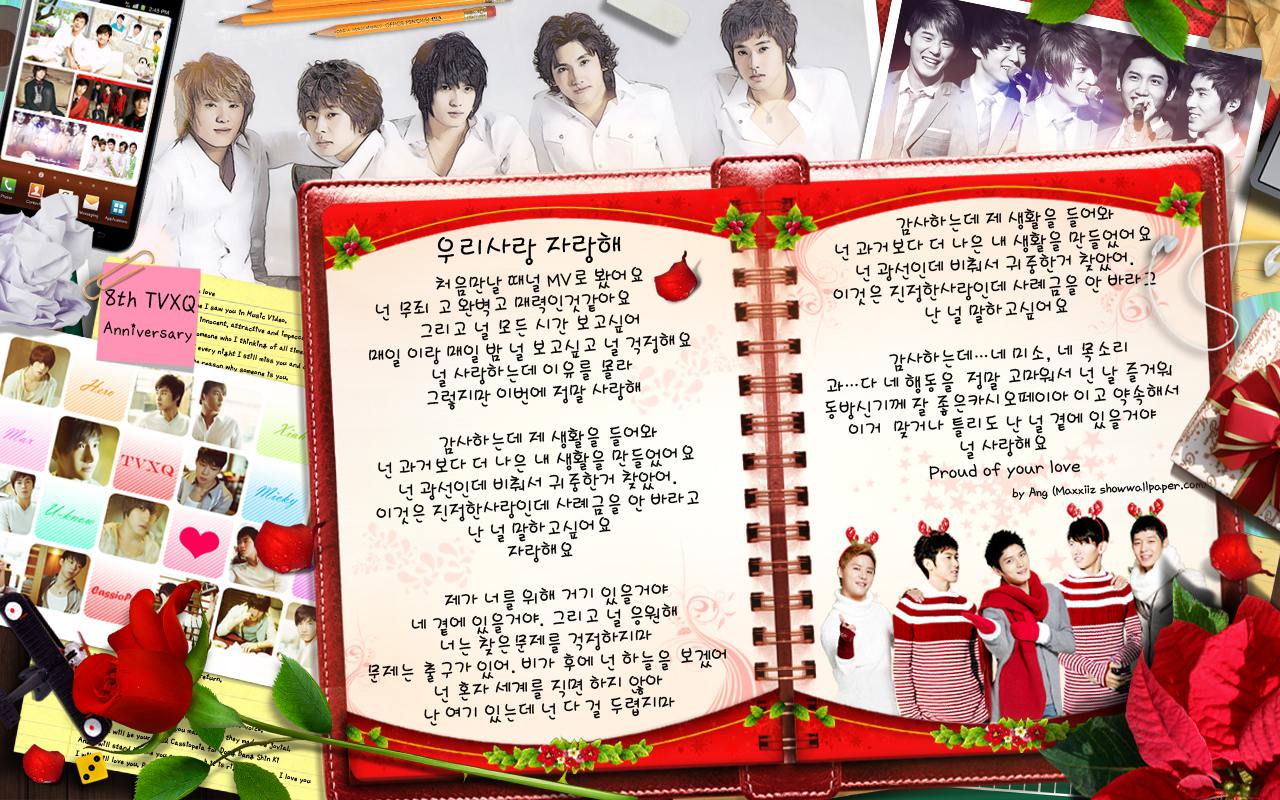 2:45 PM
Phone
Messaging
Applications
8th TVXQ
Anniversary
love
I saw you in Music Video,
innocent, attractive and
someone who I thinking of all time
every night I still miss you and
reason why someone is you,
Hero
Max
Xiah
TVXQ
Micky
U-know
우리사랑 자랑해
처음만날 때널 MV로 봤어요
넌 무죄 고 완벽고 매력인것같아요
그리고 널 모든 시간 보고싶어
매일 이랑 매일 밤 널 보고싶고 널 걱정해요
널 사랑하는데 이유를 몰라
그렇지만 이번에 정말 사랑해
감사하는데 제 생활을 들어와
넌 과거보다 더 나은 내 생활을 만들었어요
넌 광선인데 비춰서 귀중한거 찾았어.
이것은 진정한사랑인데 사례금을 안 바라고
난 널 말하고싶어요
자랑해요
제가 너를 위해 거기 있을거야
네 곁에 있을거야. 그리고 널 응원해
너는 찾은문제를 걱정하지마
문제는 출구가 있어. 비가 후에 넌 하늘을 보겠어
넌 혼자 세계를 직면 하지 않아
난 여기 있는데 넌 다 걸 두렵지마
감사하는데 제 생활을 들어와
넌 과거보다 더 나은 내 생활을 만들었어요
넌 광선인데 비춰서 귀중한거 찾았어.
이것은 진정한사랑인데 사례금을 안 바라고
난 널 말하고싶어요
감사하는데...네 미소, 네 목소리
과...다 네 행동을 정말 고마워서 넌 날 즐거워
동방신기께 잘 좋은카시오페이아 이 고 약속해서
이거 맞거나 틀리도 난 널 곁에 있을거야
널 사랑해요
Proud of your love
by Ang (Maxxiiz showwallpaper.com
return,
will be your Cassiopeia for Dong Bang Shin Ki
I love you